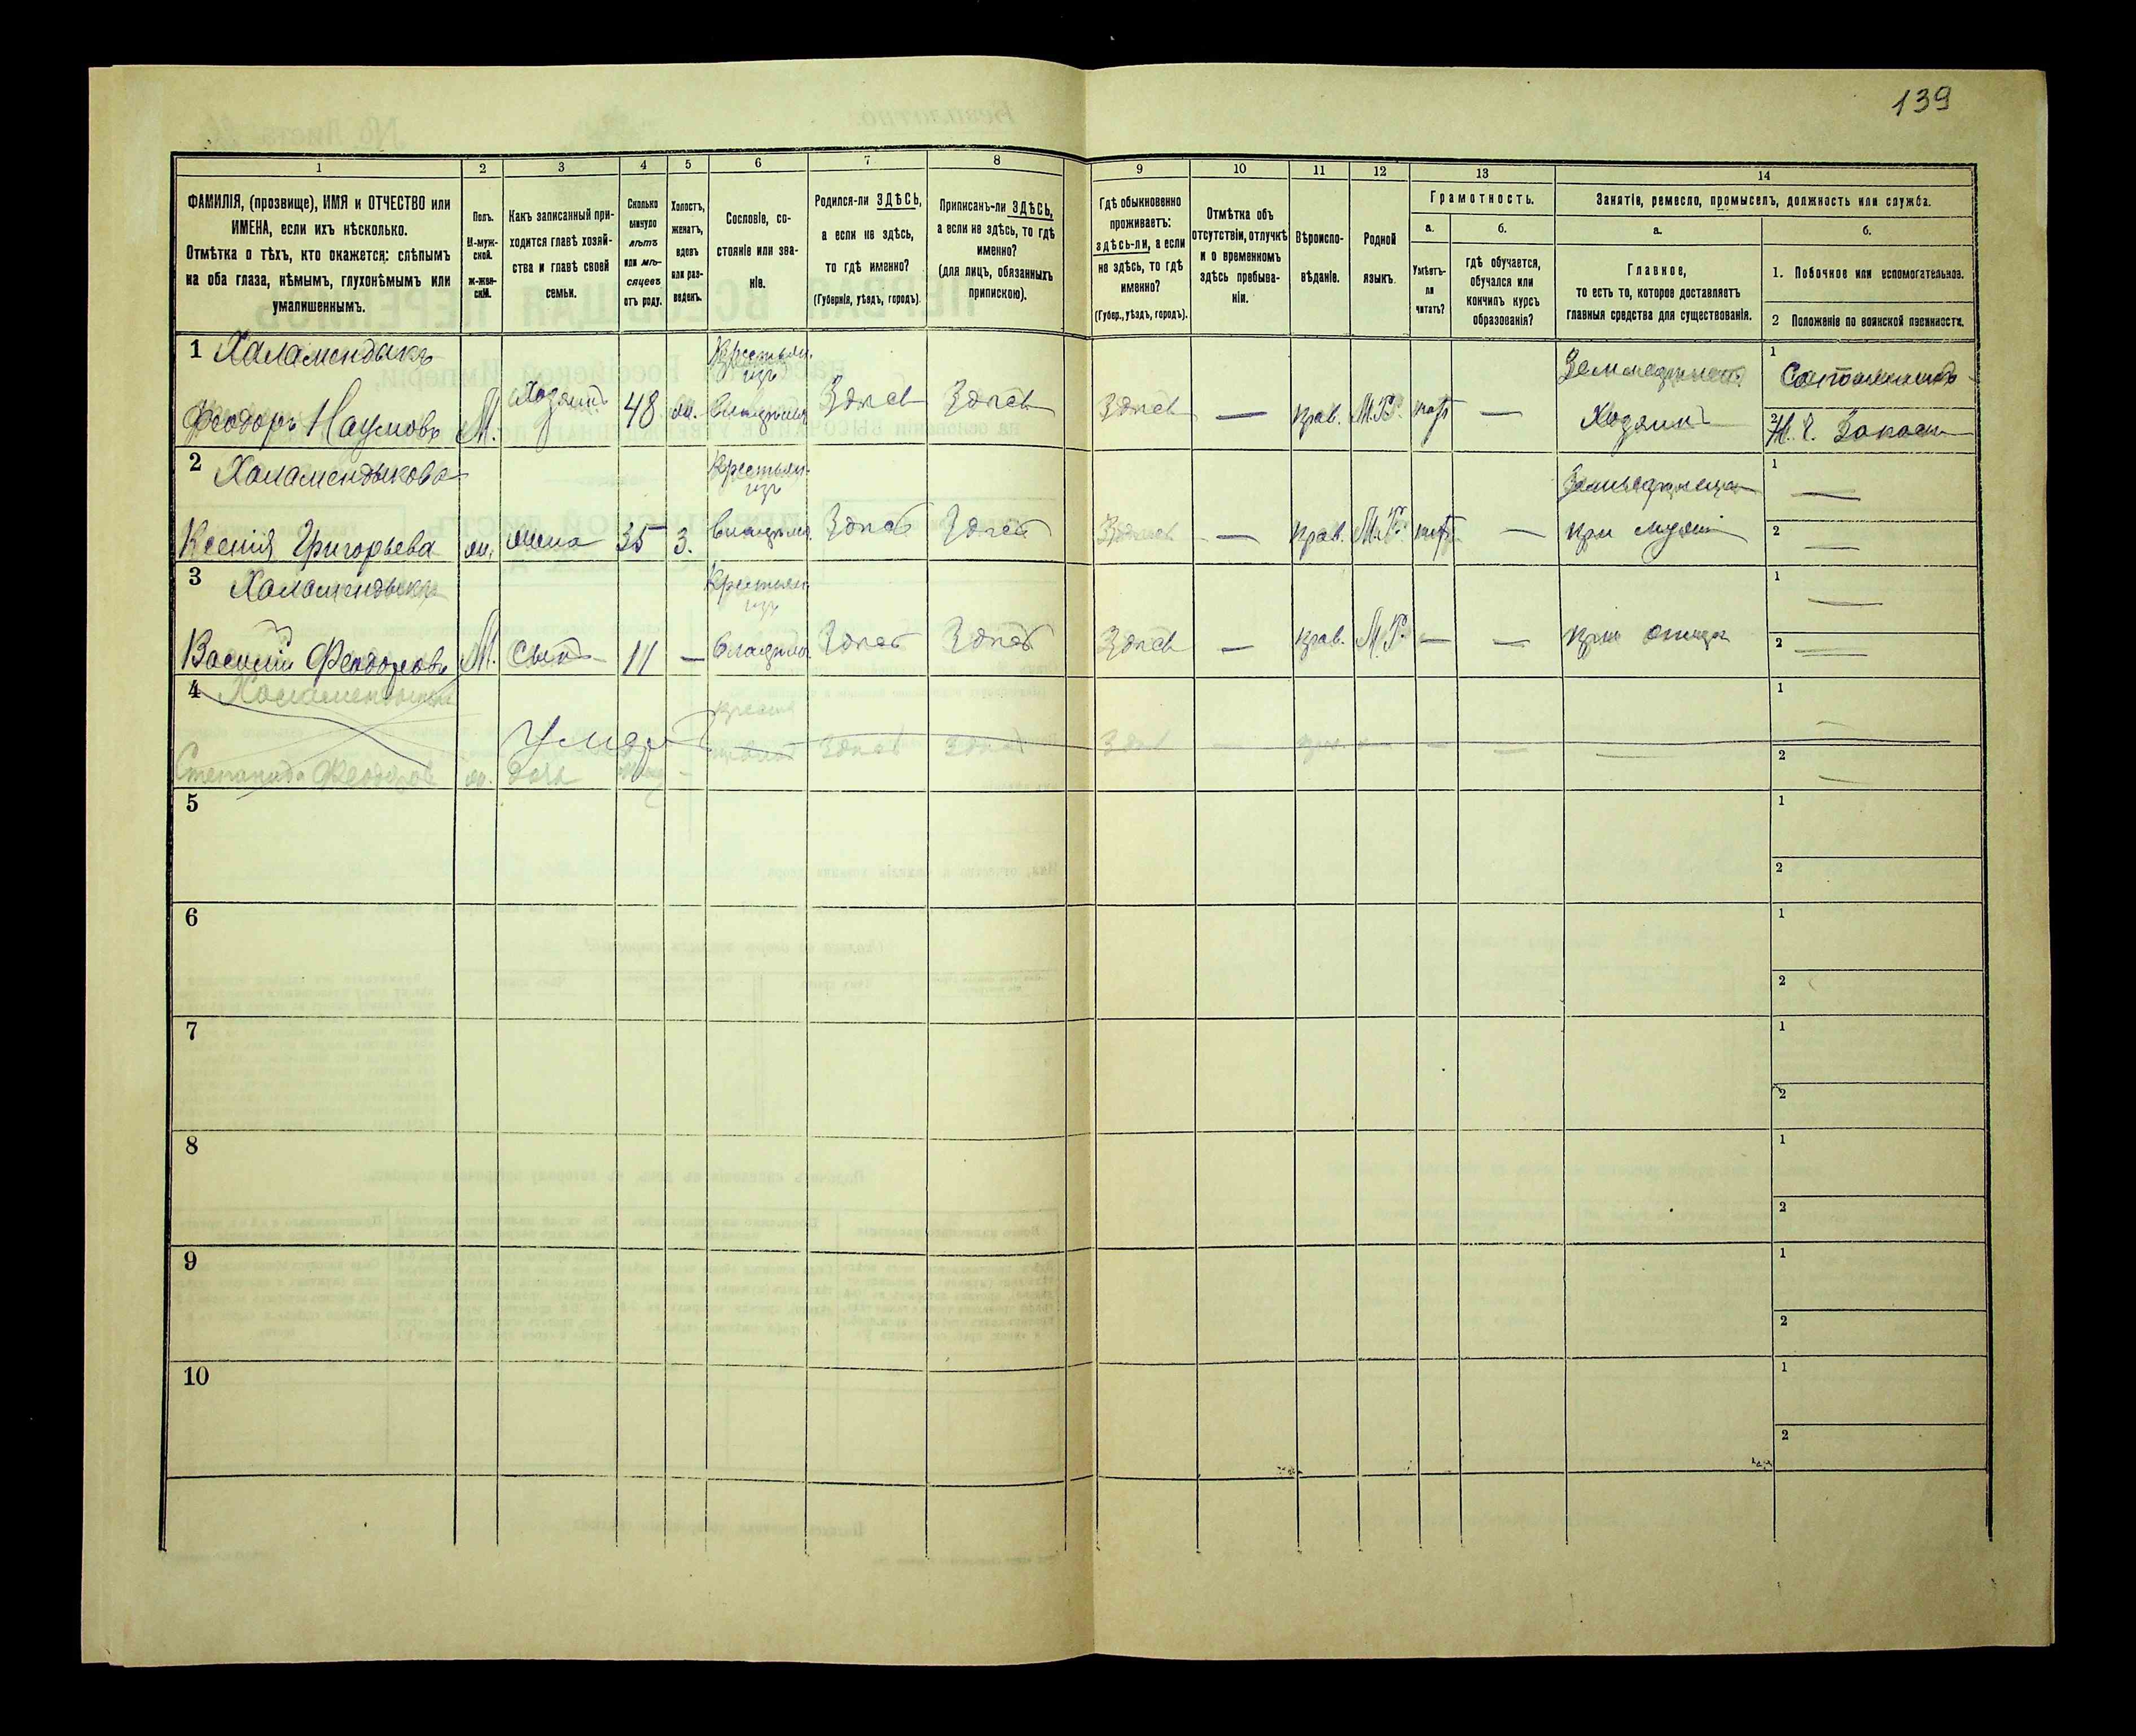 139
1 2 3 4 5 6 7 8 9 10 11 12 13 14
ФАМИЛІЯ, (прозвище), ИМЯ и ОТЧЕСТВО или
ИМЕНА, если ихъ нѣсколько.
Отмѣтка о тѣхъ, кто окажется: слѣпымъ
на оба глаза, нѣмымъ, глухонѣмымъ или
умалишеннымъ.
Полъ.
М-муж-
ской.
ж-жен-
скій.
Какъ записанный при-
ходится главѣ хозяй-
ства и главѣ своей
семьи.
Сколько
минуло
лѣтъ
или мѣ-
сяцевъ
отъ роду.
Холостъ,
женатъ,
вдовъ
или раз-
веденъ.
Сословіе, со-
стояніе или зва-
ніе.
Родился-ли ЗДѢСЬ,
а если не здѣсь,
то гдѣ именно?
(Губернія, уѣздъ, городъ).
Приписанъ-ли ЗДѢСЬ,
а если не здѣсь, то гдѣ
именно?
(для лицъ, обязанныхъ
припискою).
Гдѣ обыкновенно
проживаетъ:
здѣсь-ли, а если
не здѣсь, то гдѣ
именно?
(Губер., уѣздъ, городъ).
Отмѣтка объ
отсутствіи, отлучкѣ
и о временномъ
здѣсь пребыва-
ніи.
Вѣроиспо-
вѣданіе.
Родной
языкъ.
Грамотность.
а.
Умѣетъ-
ли
читать?
б.
гдѣ обучается,
обучался или
кончилъ курсъ
образованія?
Занятіе, ремесло, промыселъ, должность или служба.
а.
Главное,
то есть то, которое доставляетъ
главныя средства для существованія.
б.
1. Побочное или вспомогательное.
2 Положеніе по воинской повинности.
1 Халамендыкъ
Феодоръ Наумовъ М. Хозяинъ 48 ж. Крестьян. изъ Здѣсь Здѣсь Здѣсь — прав. М.Р. нѣтъ — Хозяинъ
1
2
2 Халамендыкова
Ксенія Григорьева ж. жена 35 З. Крестьян. изъ Здѣсь Здѣсь Здѣсь — прав. М.Р. нѣтъ — при мужѣ
1 —
2 —
3 Халамендыкъ
Василій Феодоровъ М. Сынъ 11 — Крестьян. изъ Здѣсь Здѣсь Здѣсь — прав. М.Р. — — при отцѣ
1 —
2 —
4
Степанида Феодоров ж. дочь Здѣсь Здѣсь Здѣсь
1
2
5
1
2
6
1
2
7
1
2
8
1
2
9
1
2
10
1
2